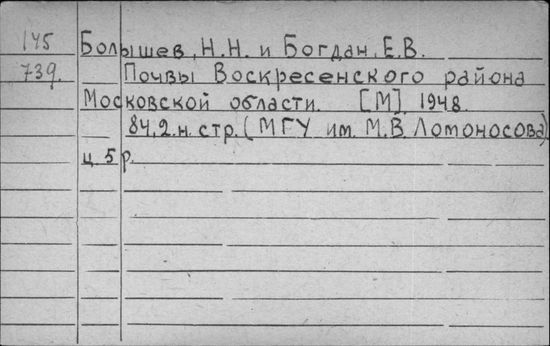 145 Болышев, Н.Н. и Богдан, Е.В.
739. Почвы Воскресенского района
Московской области. [М], 1948.
84, 2 н. стр. (МГУ им. М.В. Ломоносова)
ц. 5 р.